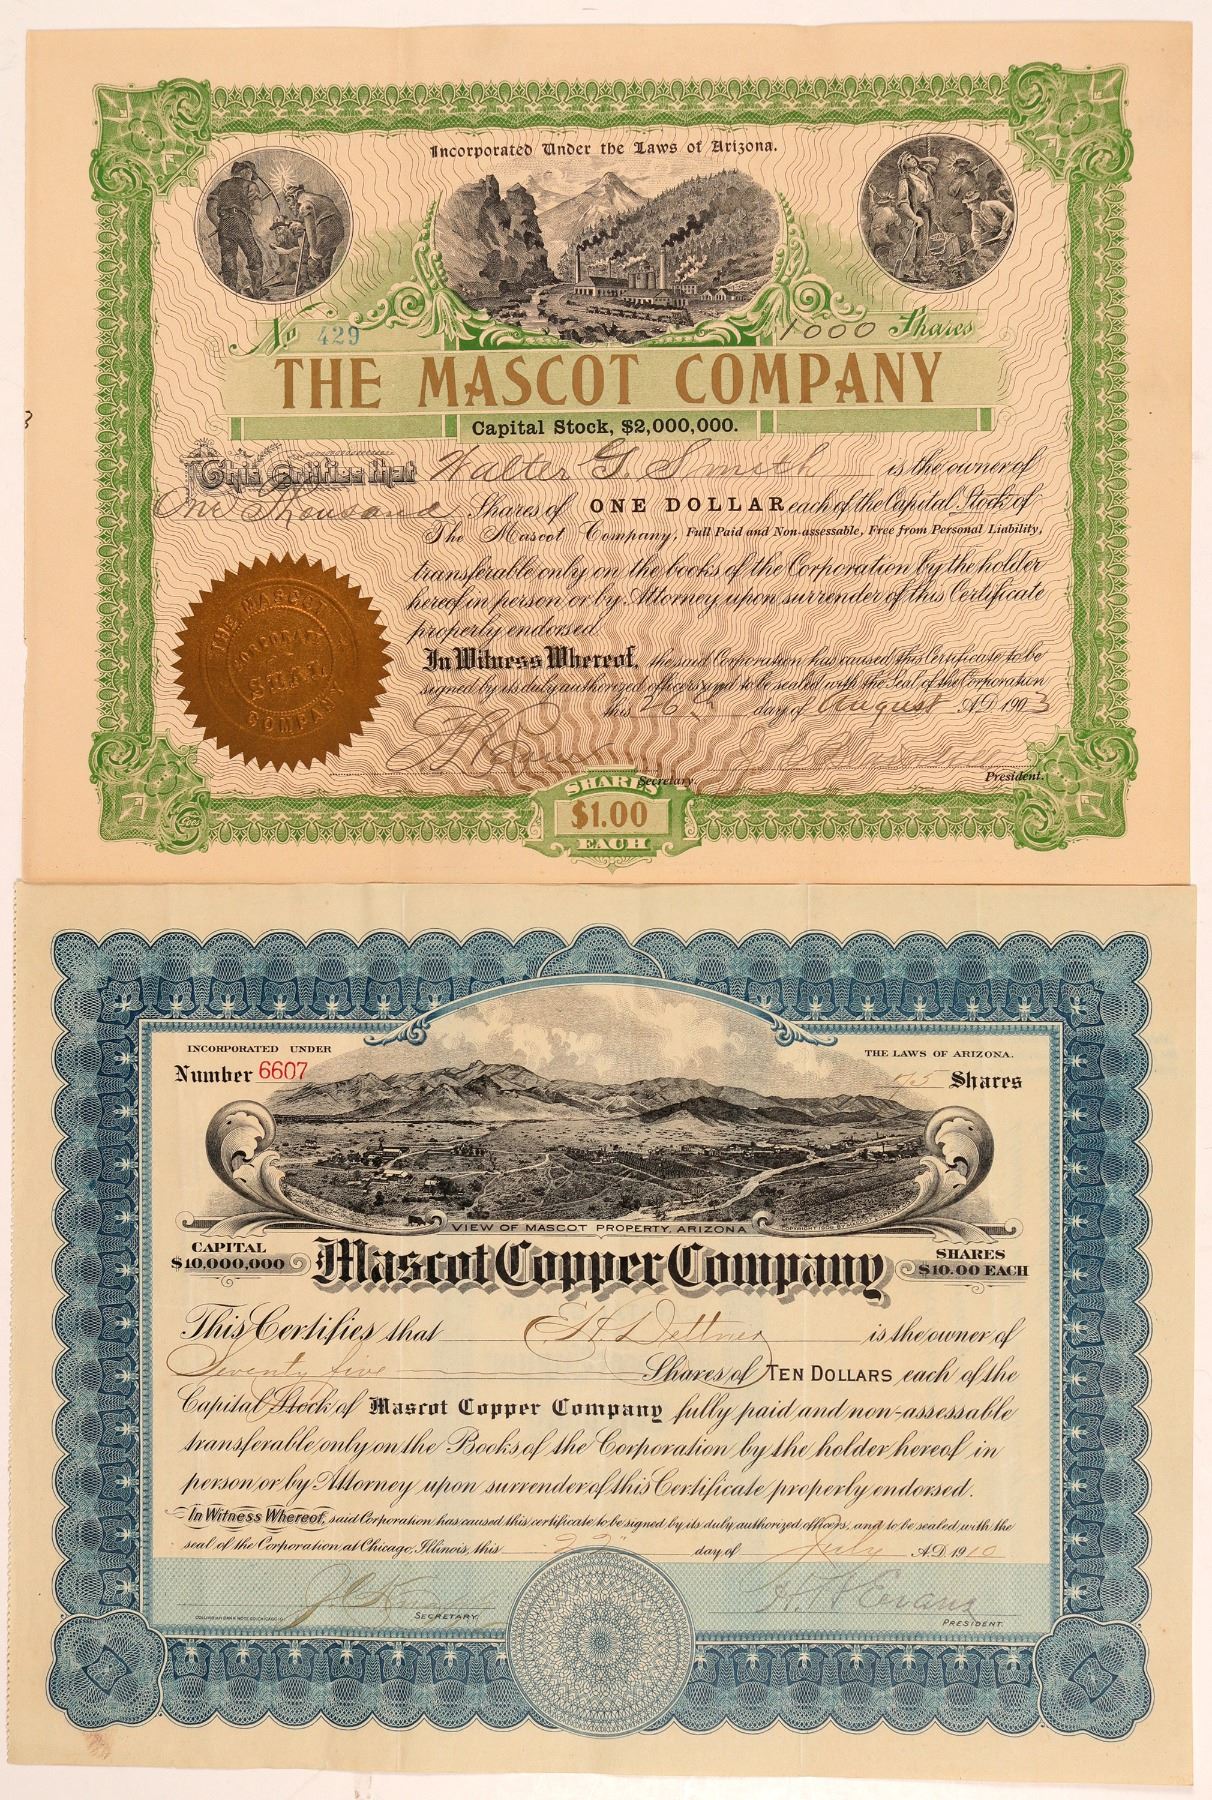 Incorporated Under the Laws of Arizona.
No 429
1000 Shares
THE MASCOT COMPANY
Capital Stock, $2,000,000.
This Certifies that Walter G. Smith is the owner of
One Thousand Shares of ONE DOLLAR each of the Capital Stock of
The Mascot Company, Full Paid and Non-assessable, Free from Personal Liability,
transferable only on the books of the Corporation by the holder
hereof in person or by Attorney upon surrender of this Certificate
properly endorsed.
In Witness Whereof, the said Corporation has caused this Certificate to be
signed by its duly authorized officers and to be sealed with the Seal of the Corporation
this 26 day of August A.D. 1903
THE MASCOT COMPANY
CORPORATE SEAL
Secretary.
President.
SHARES
$1.00
EACH
INCORPORATED UNDER THE LAWS OF ARIZONA.
Number 6607
Shares
VIEW OF MASCOT PROPERTY, ARIZONA
CAPITAL
$10,000,000
Mascot Copper Company
SHARES
$10.00 EACH
This Certifies that E H Dettner is the owner of
Seventy five Shares of TEN DOLLARS each of the
Capital Stock of Mascot Copper Company fully paid and non-assessable
transferable only on the Books of the Corporation by the holder hereof in
person or by Attorney upon surrender of this Certificate properly endorsed.
In Witness Whereof, said Corporation has caused this certificate to be signed by its duly authorized officers, and to be sealed with the
seal of the Corporation at Chicago, Illinois, this day of July A.D. 1910
Evans
SECRETARY.
PRESIDENT.